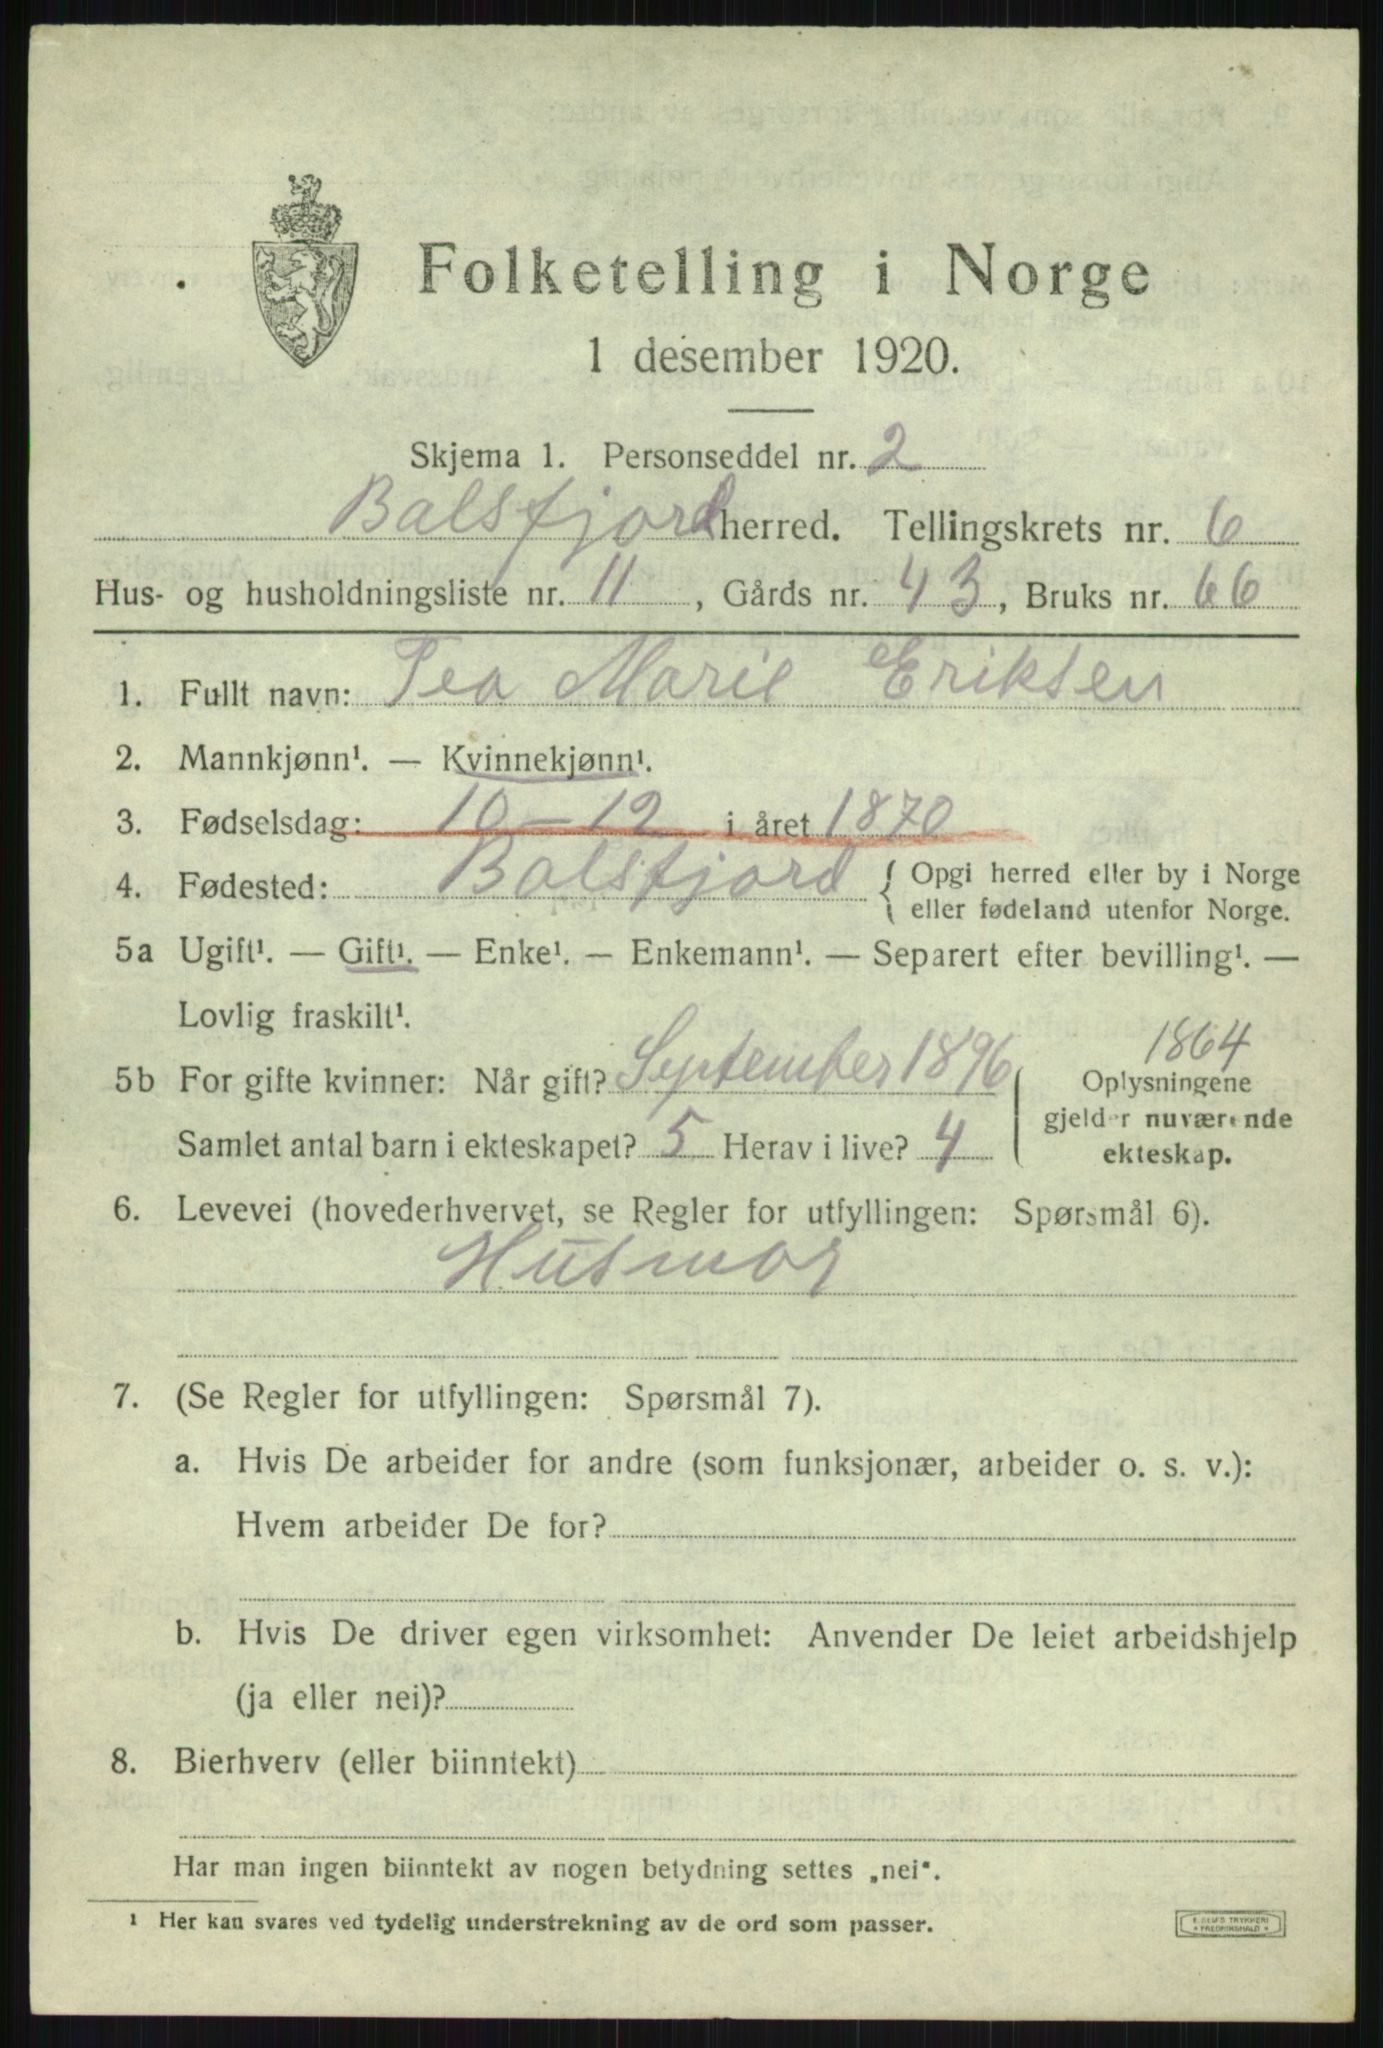 Folketelling i Norge
1 desember 1920.
Skjema 1. Personseddel nr. 2
Balsfjord herred. Tellingskrets nr. 6
Hus- og husholdningsliste nr. 11, Gårds nr. 43, Bruks nr. 66
1. Fullt navn: Tea Marie Eriksen
2. Mannkjønn¹. — Kvinnekjønn¹.
3. Fødselsdag: 10-12 i året 1870
4. Fødested: Balsfjord { Opgi herred eller by i Norge
eller fødeland utenfor Norge.
5a Ugift¹. — Gift¹. — Enke¹. — Enkemann¹. — Separert efter bevilling¹. —
Lovlig fraskilt¹.
1864
5b For gifte kvinner: Når gift? September 1896 Oplysningene
gjelder nuværende
Samlet antal barn i ekteskapet? 5 Herav i live? 4 ekteskap.
6. Levevei (hovederhvervet, se Regler for utfyllingen: Spørsmål 6).
Husmor
7. (Se Regler for utfyllingen: Spørsmål 7).
a. Hvis De arbeider for andre (som funksjonær, arbeider o. s. v.):
Hvem arbeider De for?
b. Hvis De driver egen virksomhet: Anvender De leiet arbeidshjelp
(ja eller nei)?
8. Bierhverv (eller biinntekt)
Har man ingen biinntekt av nogen betydning settes „nei“.
¹ Her kan svares ved tydelig understrekning av de ord som passer.
E. SEM'S TRYKKERI
* FREDRIKSHALD *